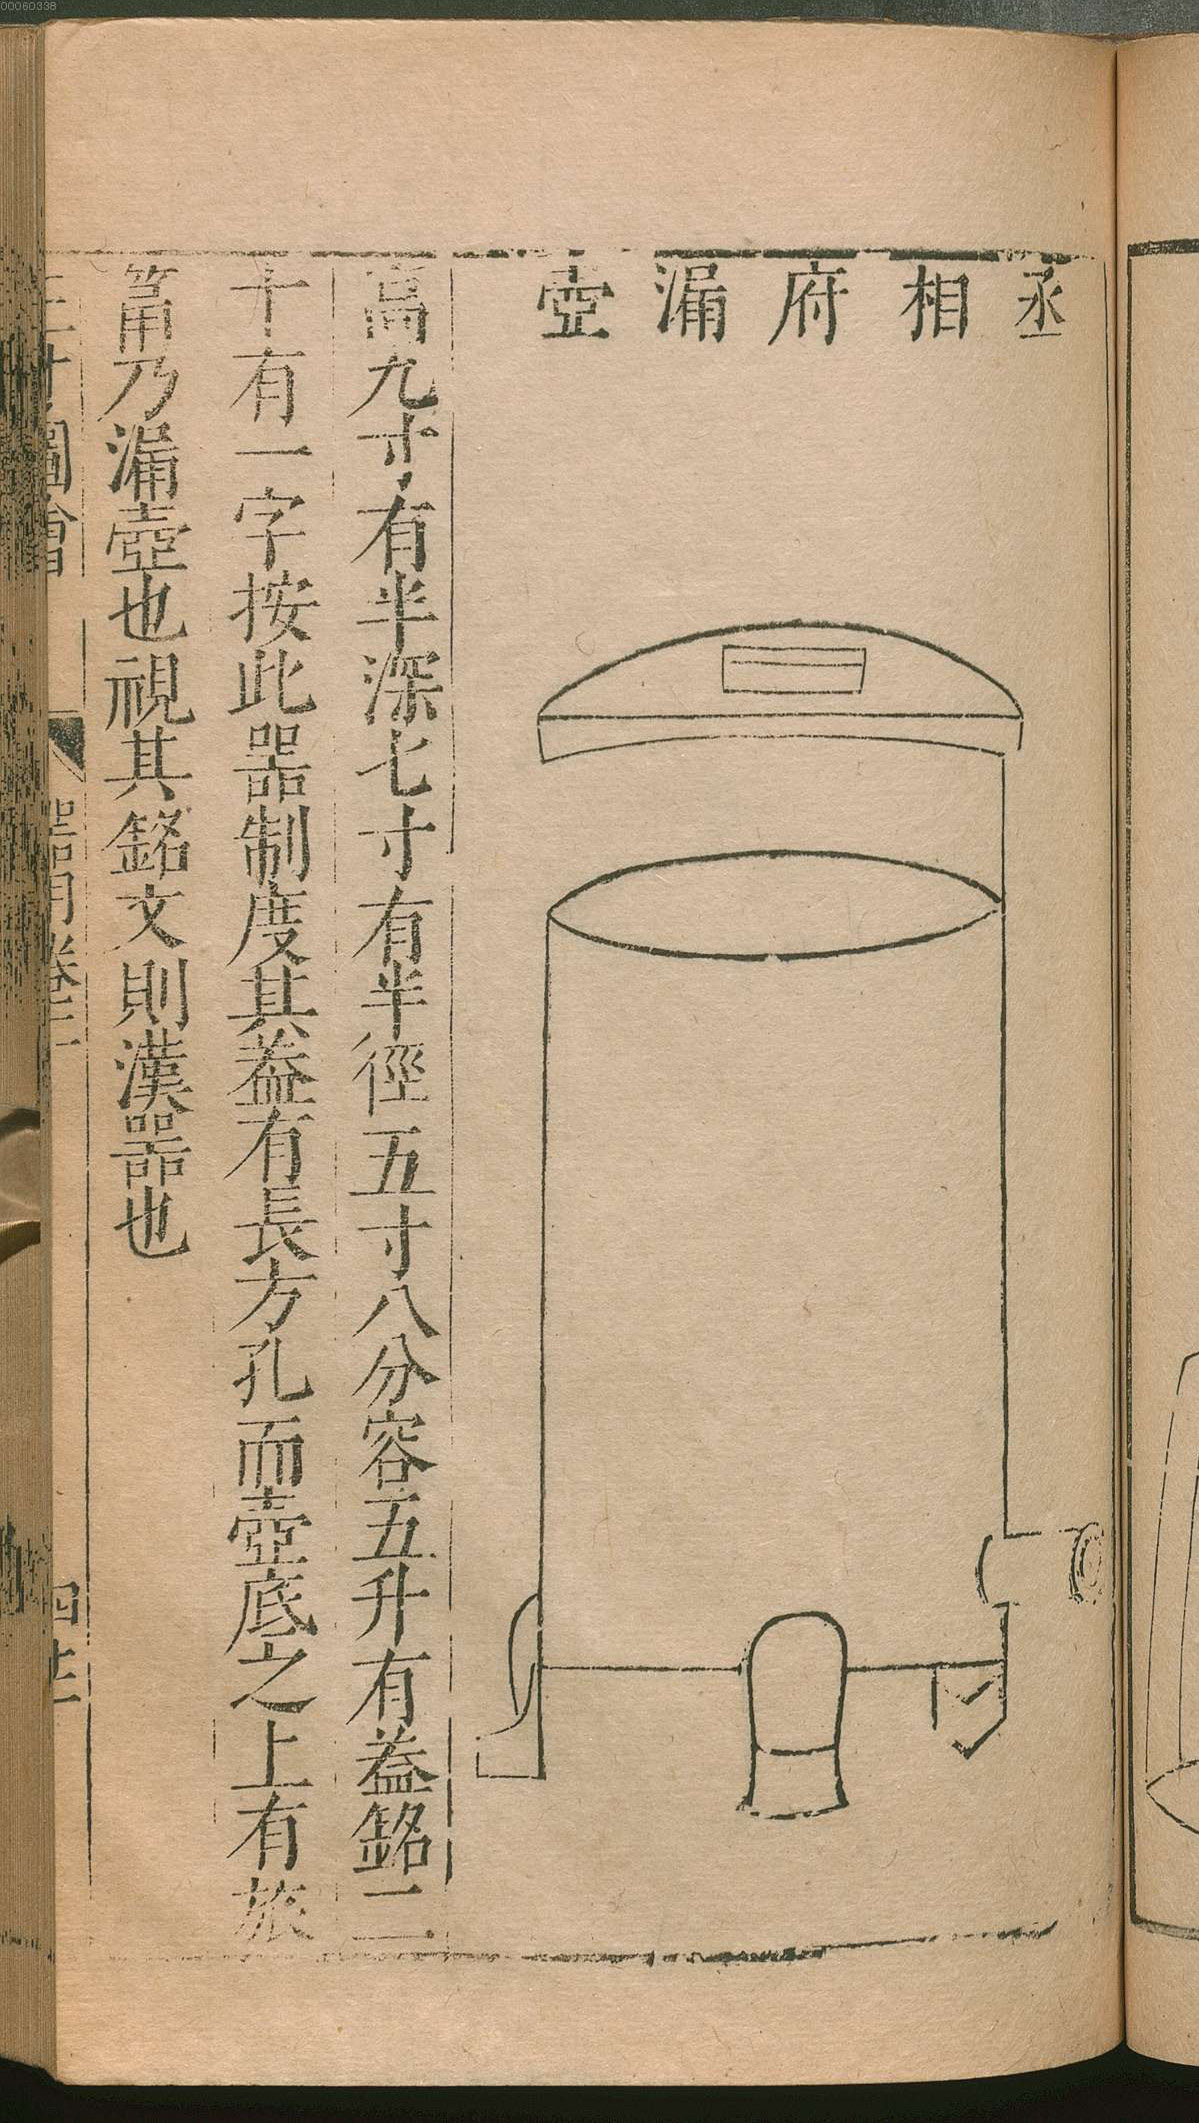 00060338
丞相府漏壺
高九寸有半深七寸有半徑五寸八分容五升有葢銘二
十有一字按此器制度其葢有長方孔而壺底之上有旅
筩乃漏壺也視其銘文則漢器也
三才圖會 器用卷二